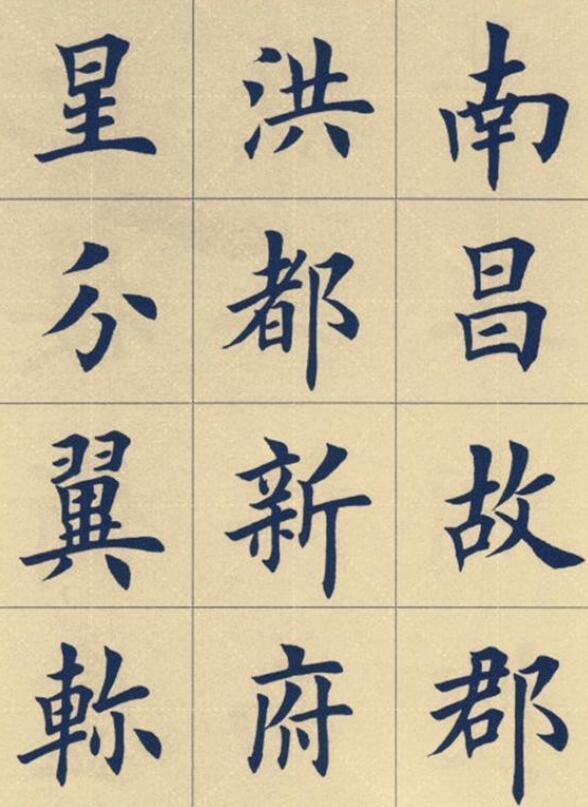 南昌故郡
洪都新府
星分翼軫